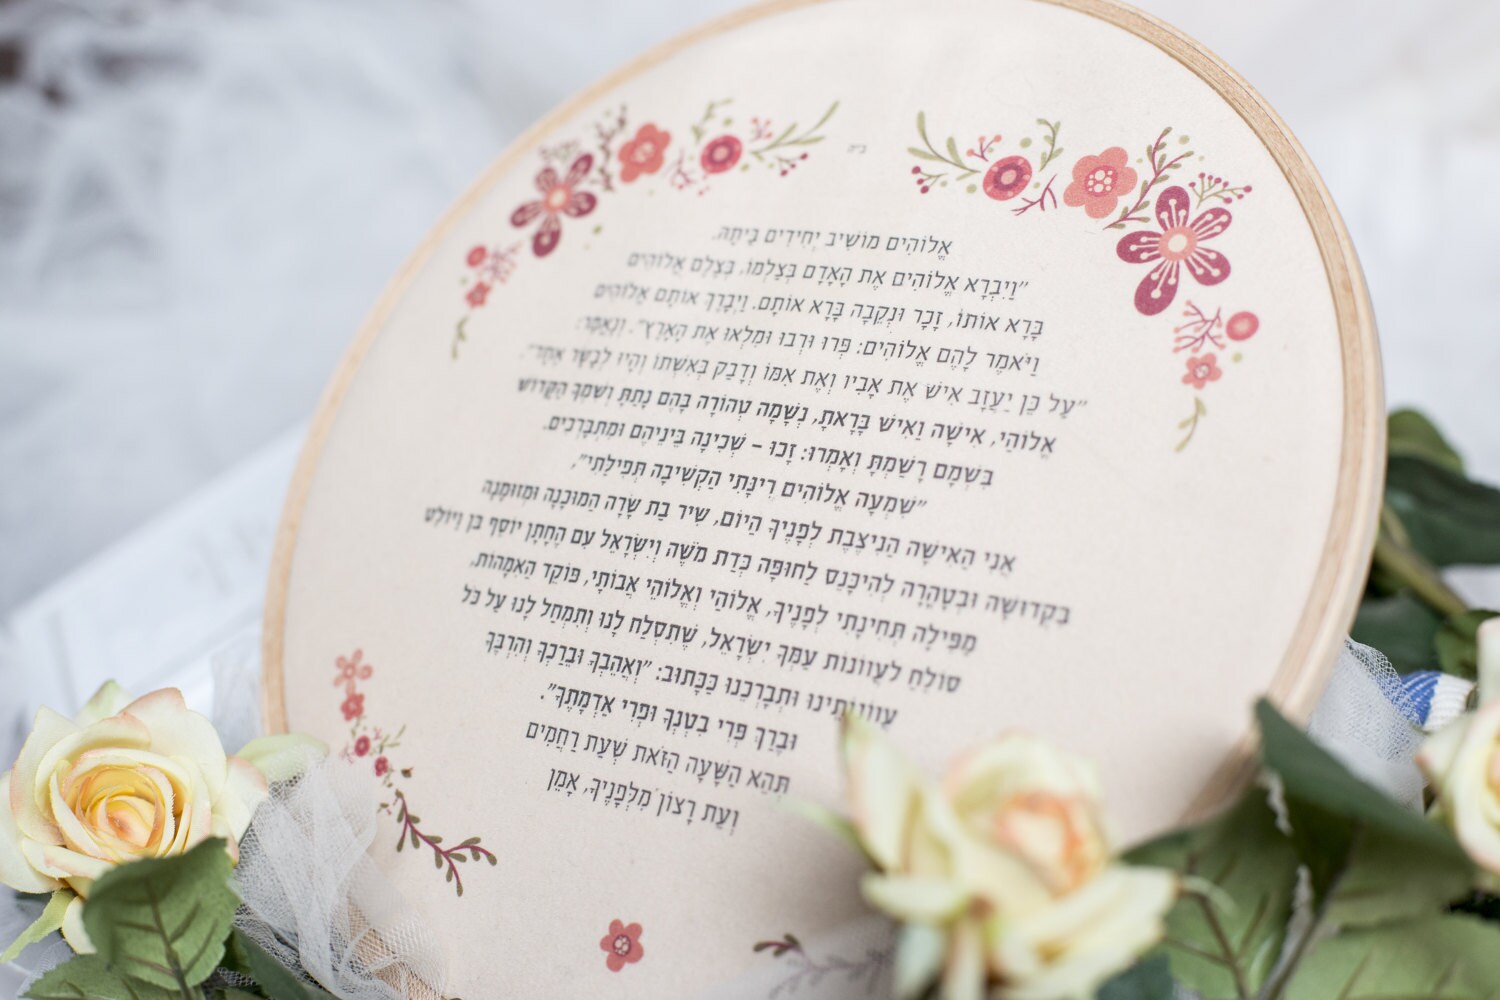 אֱלוֹהִים מוֹשִׁיב יְחִידִים בַּיְתָה.
"וַיִּבְרָא אֱלוֹהִים אֶת הָאָדָם בְּצַלְמוֹ, בְּצֶלֶם אֱלוֹהִים
בָּרָא אוֹתוֹ, זָכָר וּנְקֵבָה בָּרָא אוֹתָם. וַיְבָרֶךְ אוֹתָם אֱלוֹהִים
וַיֹּאמֶר לָהֶם אֱלוֹהִים: פְּרוּ וּרְבוּ וּמִלְאוּ אֶת הָאָרֶץ". וְנֶאֱמַר:
"עַל כֵּן יַעֲזָב אִישׁ אֶת אָבִיו וְאֶת אִמּוֹ וְדָבַק בְּאִשְׁתּוֹ וְהָיוּ לְבָשָׂר אֶחָד".
אֱלוֹהַי, אִישָׁה וַאִישׁ בָּרָאתָ, נְשָׁמָה טְהוֹרָה בָּהֶם נָתַתָּ וְשִׁמְךָ הַקָּדוֹשׁ
בִּשְׁמָם רָשַׁמְתָּ וְאָמְרוּ: זָכוּ – שְׁכִינָה בֵּינֵיהֶם וּמִתְבָּרְכִים.
"שִׁמְעָה אֱלוֹהִים רִינָּתִי הַקְשִׁיבָה תְּפִילָתִי",
אֲנִי הָאִישָּׁה הַנִּיצֶּבֶת לְפָנֶיךָ הַיּוֹם, שִׁיר בַּת שָׂרָה הַמּוּכָנָה וּמְזוּמֶּנֶה
בִּקְדוּשָּׁה וּבְטָהֳרָה לְהִיכָּנֵס לַחוּפָּה כְּדַת מֹשֶׁה וְיִשְׂרָאֵל עִם הֶחָתָן יוֹסֵף בֵּן וַיּוֹלֵט
מַפִּילָה תְּחִינָתִי לְפָנֶיךָ, אֱלוֹהַי וֶאֱלוֹהֵי אֲבוֹתַי, פּוֹקֵד הָאִמָּהוֹת,
סוֹלֵחַ לַעֲווֹנוֹת עַמְּךָ יִשְׂרָאֵל, שֶׁתִּסְלַח לָנוּ וְתִמְחַל לָנוּ עַל כֹּל
עֲווֹנוֹתֵינוּ וּתְבָרְכֵנוּ כַּכָּתוּב: "וַאֲהֵבְךָ וּבֵרַכְךָ וְהִרְבֶּךָ
וּבֵרַךְ פְּרִי בִטְנְךָ וּפְרִי אַדְמָתֶךָ".
תְּהֵא הַשָּׁעָה הַזֹּאת שְׁעַת רַחֲמִים
וְעֵת רָצוֹן מִלְּפָנֶיךָ, אָמֵן